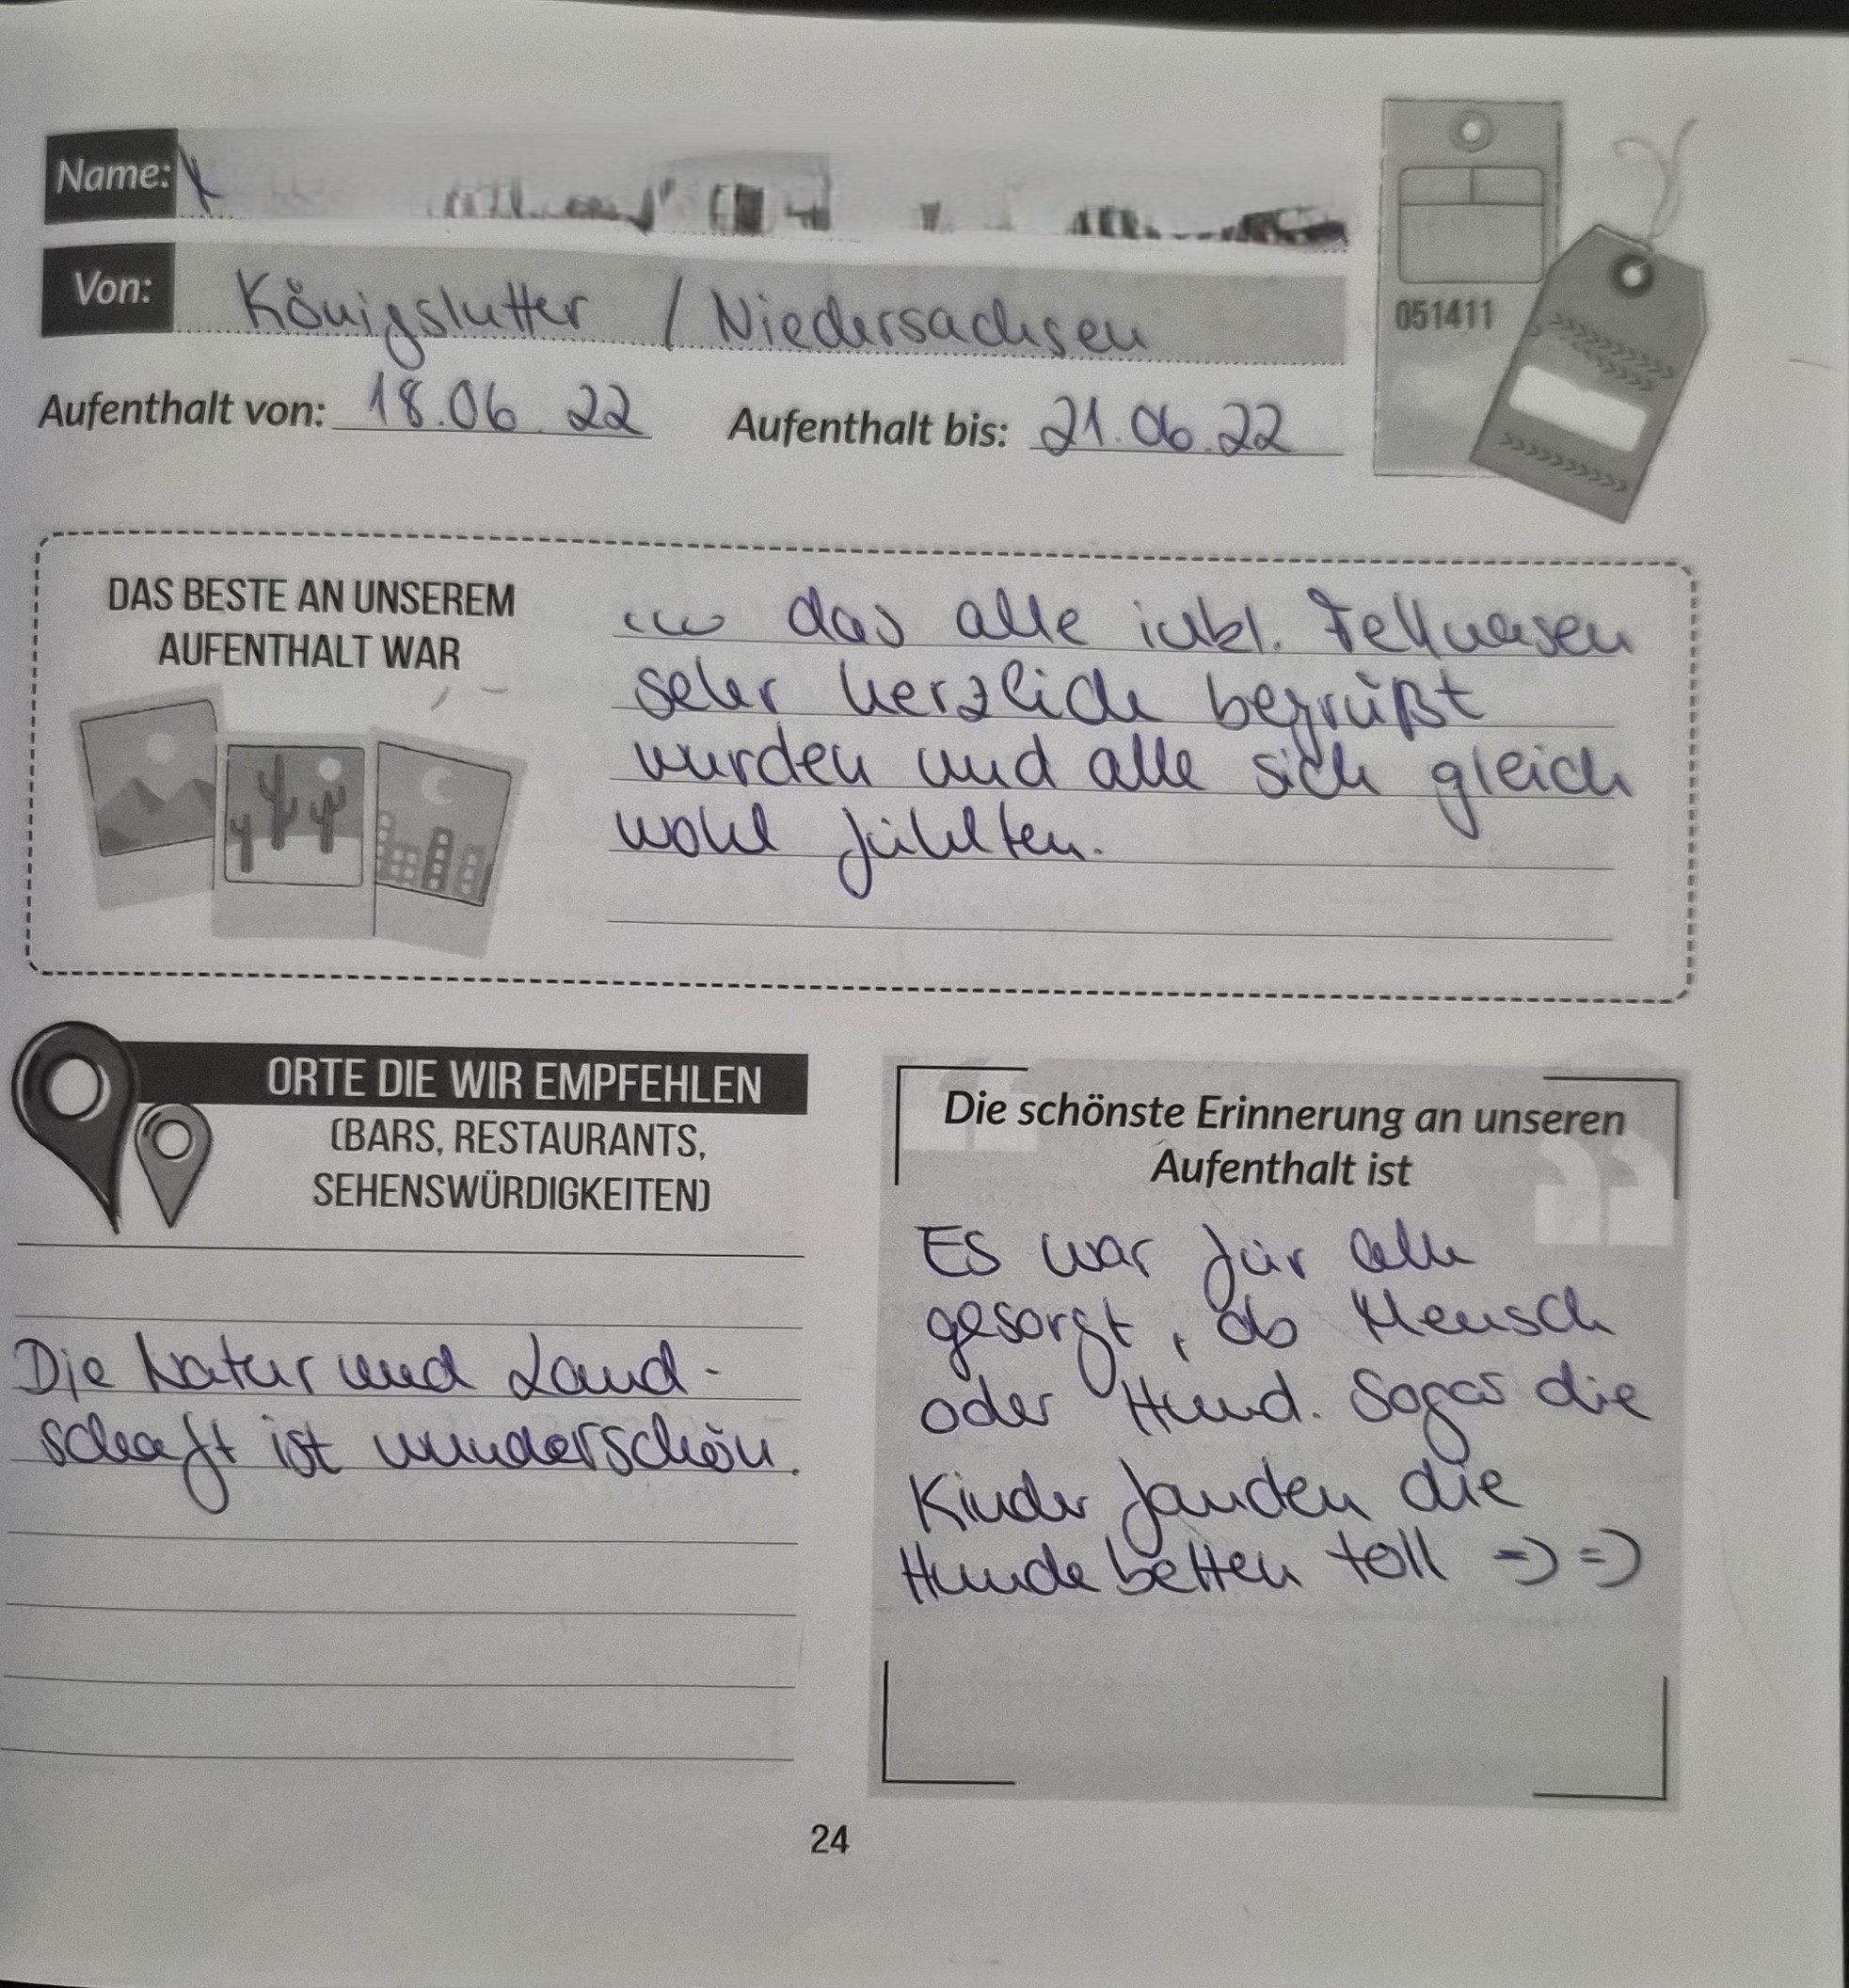 Name:
Von: Königslutter / Niedersachsen
Aufenthalt von: 18.06.22 Aufenthalt bis: 21.06.22
051411
DAS BESTE AN UNSEREM
AUFENTHALT WAR
das alle inkl. Fellnasen
sehr herzlich begrüßt
wurden und alle sich gleich
wohl fühlten.
ORTE DIE WIR EMPFEHLEN
(BARS, RESTAURANTS,
SEHENSWÜRDIGKEITEN)
Die Natur und Land-
schaft ist wunderschön.
Die schönste Erinnerung an unseren
Aufenthalt ist
Es war für alle
gesorgt, ob Mensch
oder Hund. Sogar die
Kinder fanden die
Hundebetten toll =) =)
24